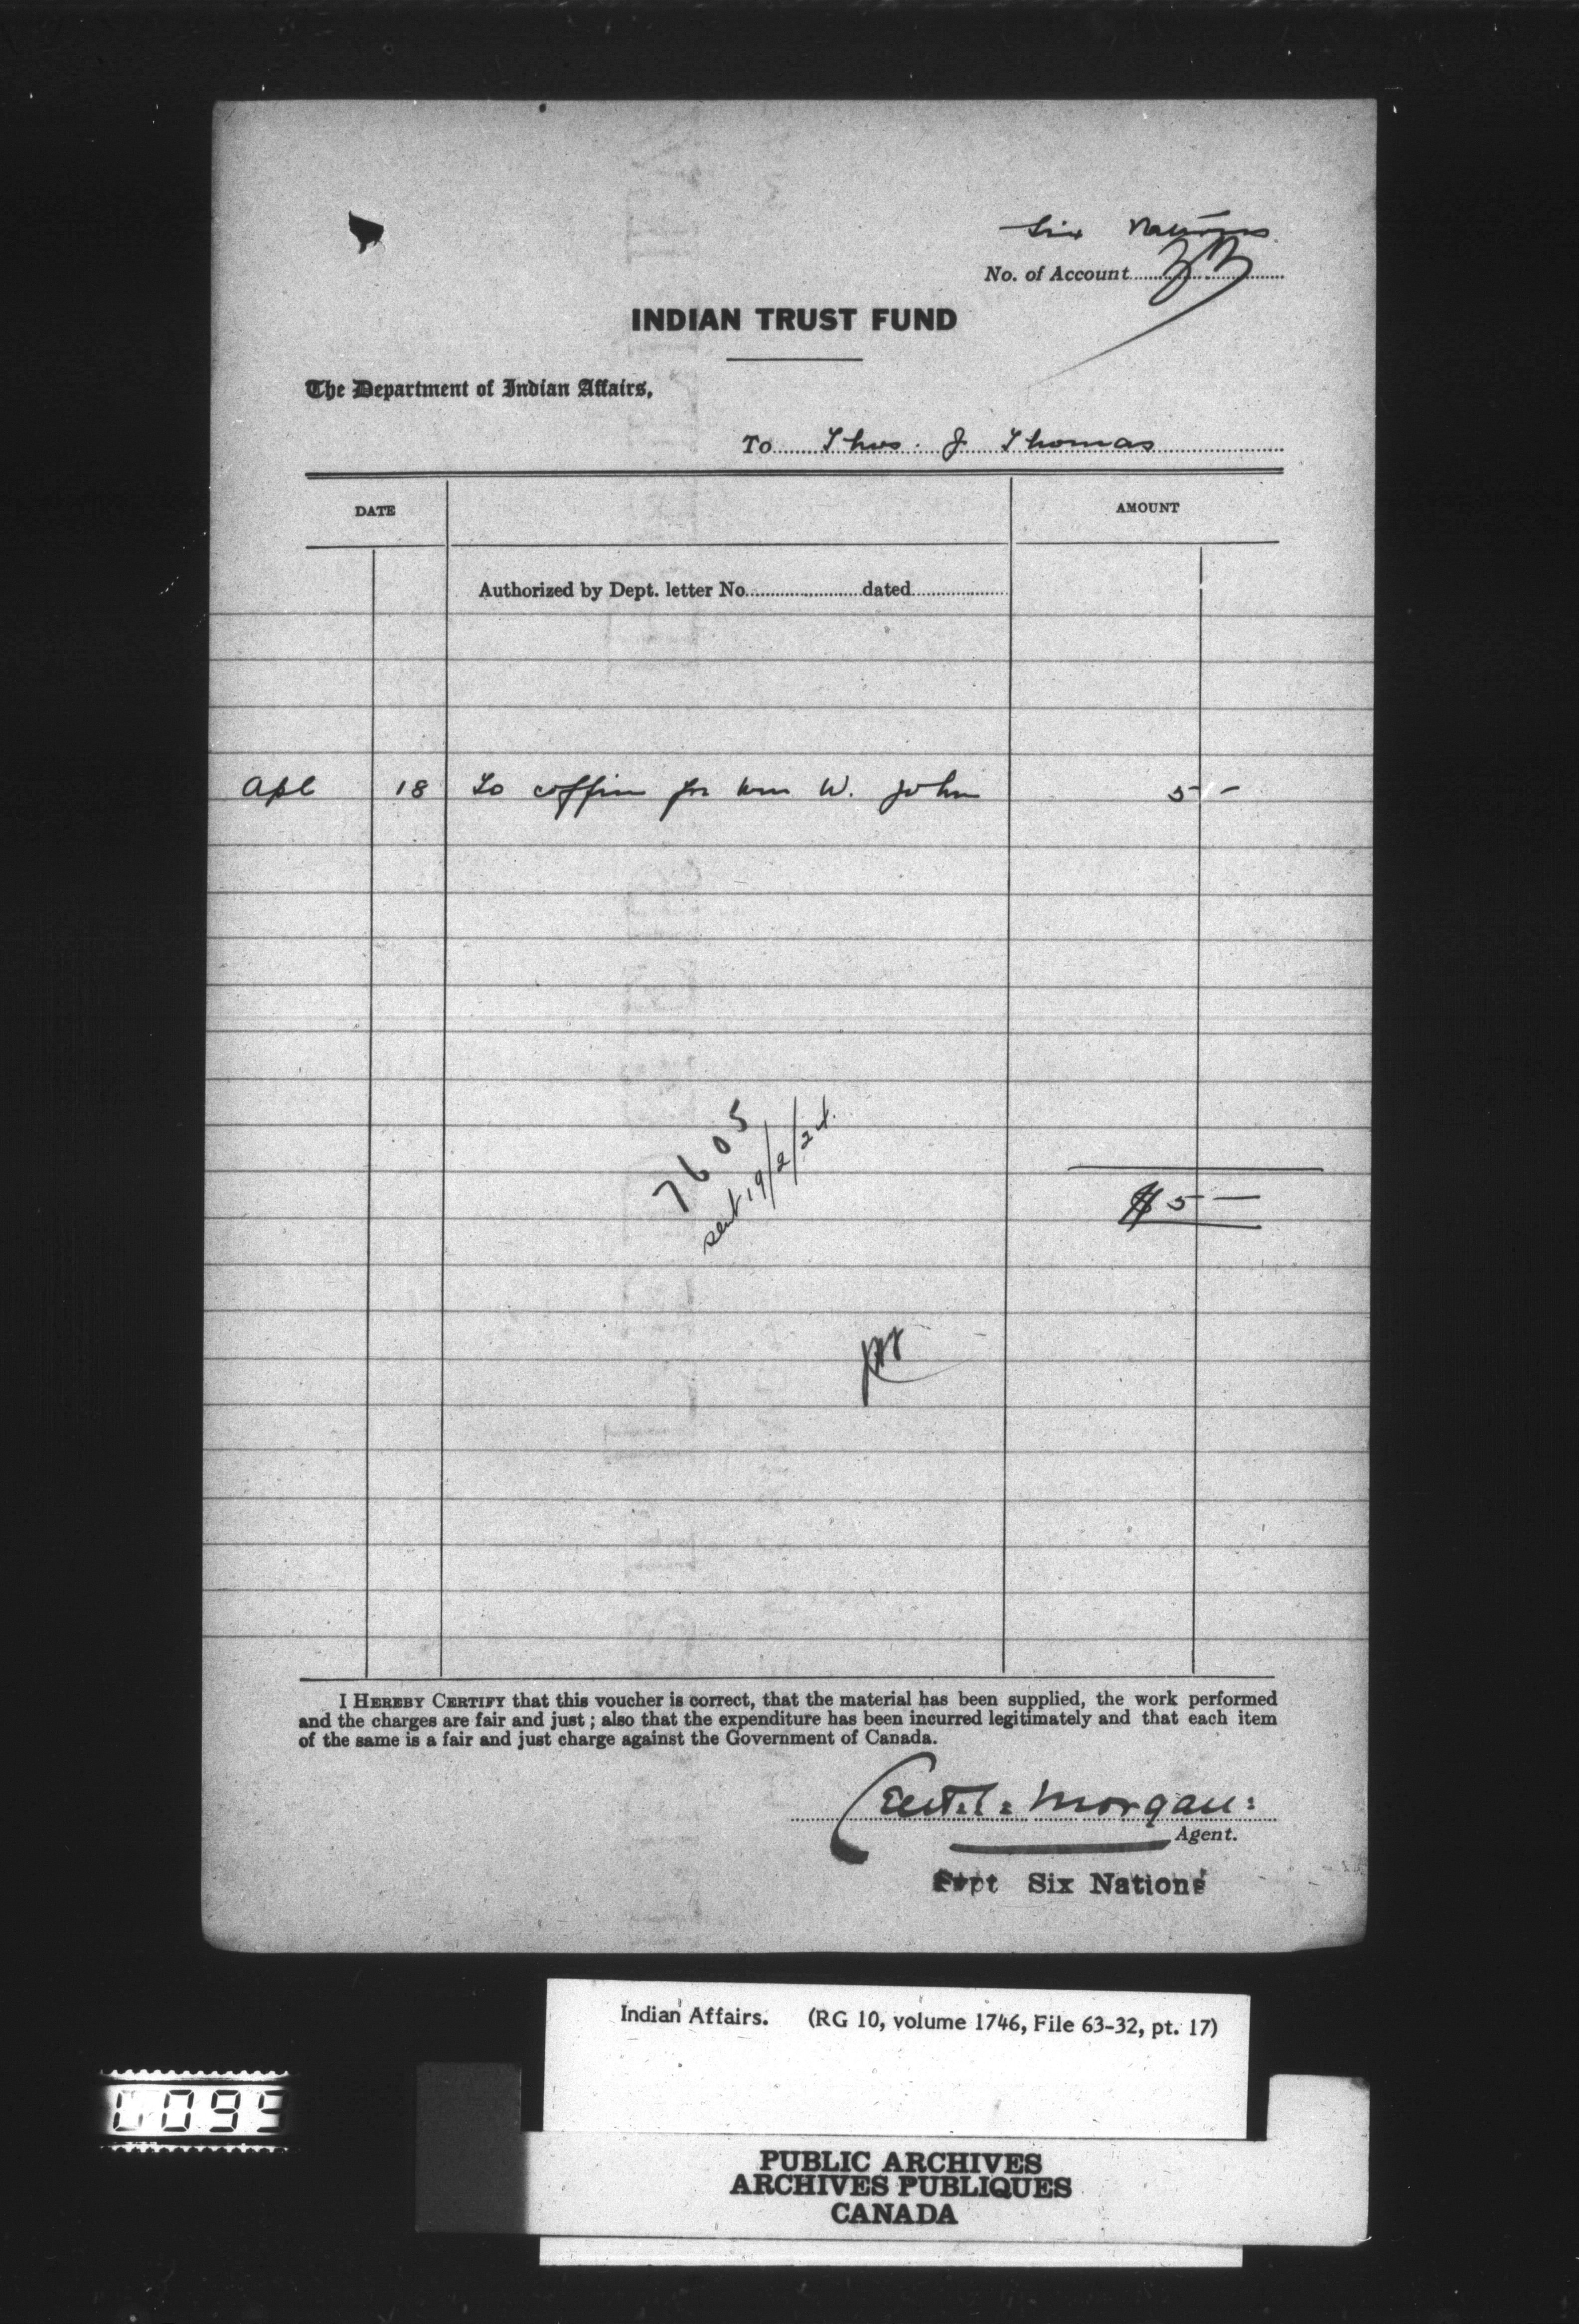 Six Nations.
No. of Account
INDIAN TRUST FUND
The Department of Indian Affairs,
To Thos. J Thomas
DATE AMOUNT
Authorized by Dept. letter No. dated
Apl 18 To coffin for Wm W. John 5 -
7605
sent 19/2/24.
$5 —
I HEREBY CERTIFY that this voucher is correct, that the material has been supplied, the work performed
and the charges are fair and just; also that the expenditure has been incurred legitimately and that each item
of the same is a fair and just charge against the Government of Canada.
Morgan:
Agent.
Six Nations
Indian Affairs. (RG 10, volume 1746, File 63-32, pt. 17)
PUBLIC ARCHIVES
ARCHIVES PUBLIQUES
CANADA